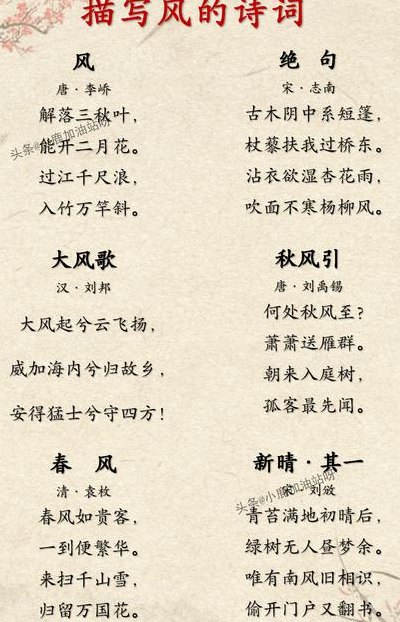 描写风的诗词
风
唐·李峤
解落三秋叶，
能开二月花。
过江千尺浪，
入竹万竿斜。
绝 句
宋·志南
古木阴中系短篷，
杖藜扶我过桥东。
沾衣欲湿杏花雨，
吹面不寒杨柳风。
大风歌
汉·刘邦
大风起兮云飞扬，
威加海内兮归故乡，
安得猛士兮守四方！
秋风引
唐·刘禹锡
何处秋风至？
萧萧送雁群。
朝来入庭树，
孤客最先闻。
春 风
清·袁枚
春风如贵客，
一到便繁华。
来扫千山雪，
归留万国花。
新晴·其一
宋·刘攽
青苔满地初晴后，
绿树无人昼梦余。
唯有南风旧相识，
偷开门户又翻书。
头条@小鹿加油站呀
头条@小鹿加油站呀